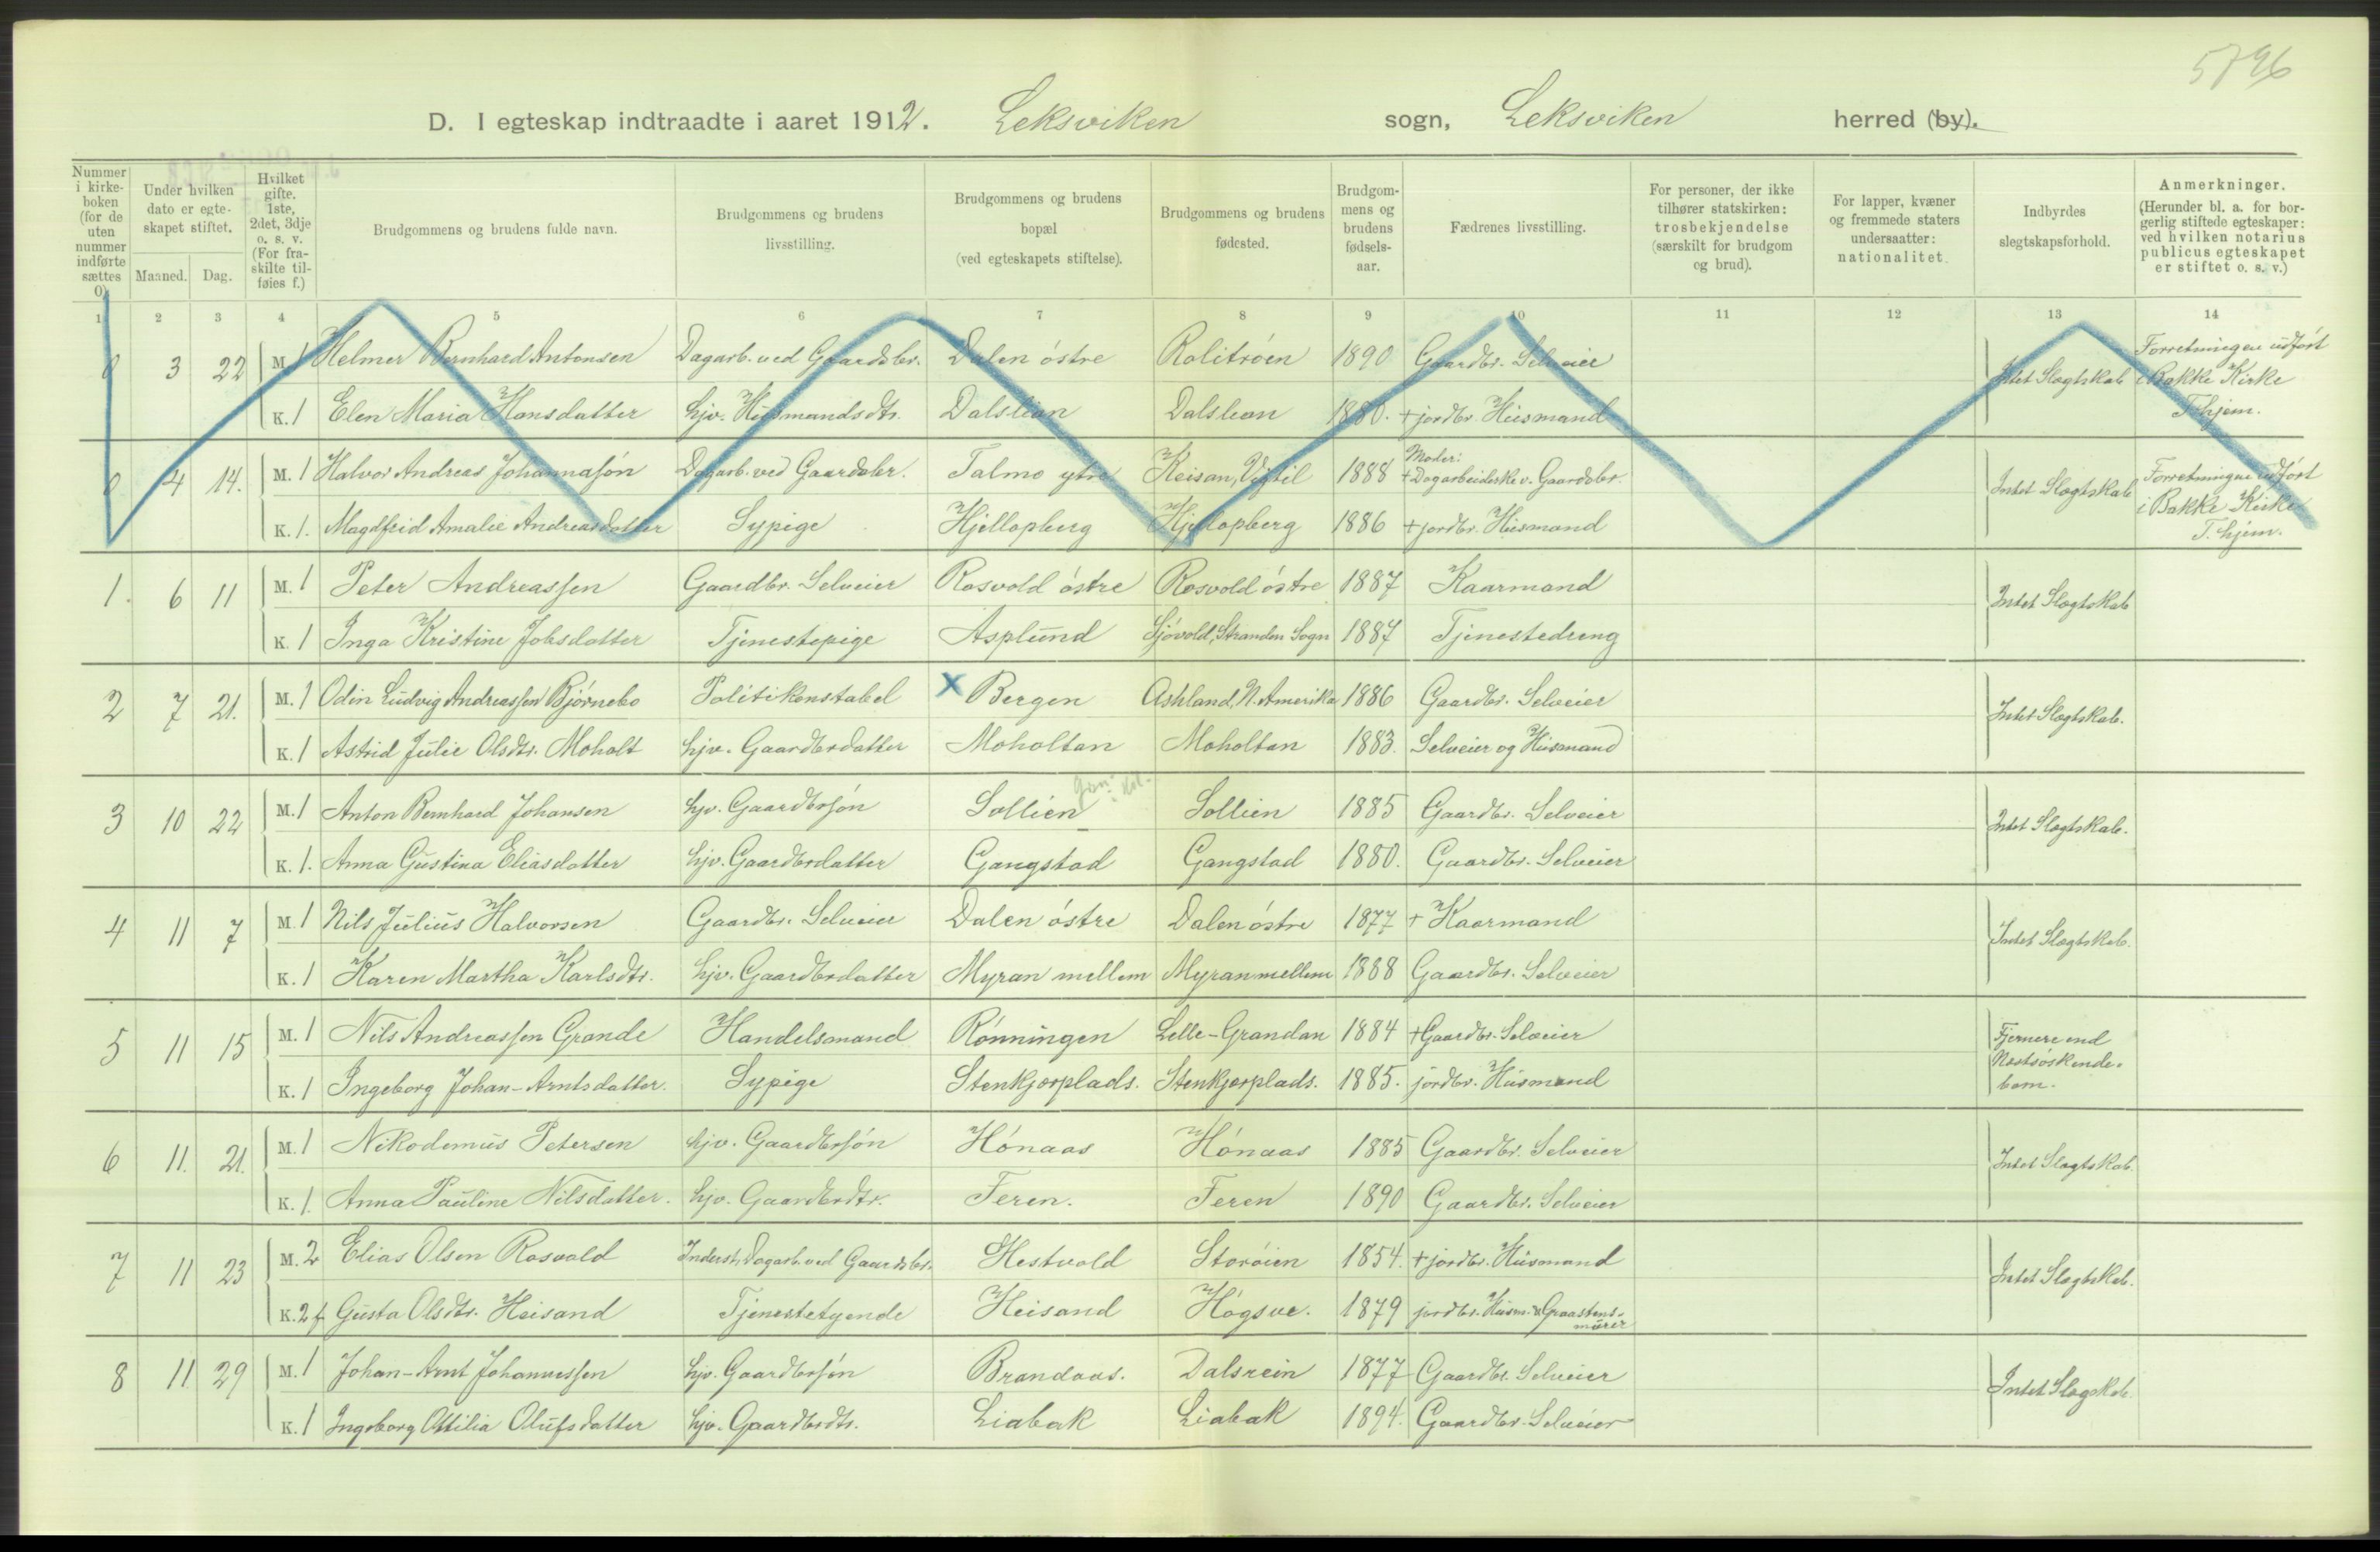 5796
D. I egteskap indtraadte i aaret 1912. Leksviken sogn, Leksviken herred (by).
Nummer i kirkeboken (for de uten nummer indførte sættes 0).
Under hvilken dato er egteskapet stiftet.
Maaned. Dag.
Hvilket gifte, 1ste, 2det, 3dje o. s. v. (For fraskilte tilføies f.)
Brudgommens og brudens fulde navn.
Brudgommens og brudens livsstilling.
Brudgommens og brudens bopæl (ved egteskapets stiftelse).
Brudgommens og brudens fødested.
Brudgommens og brudens fødselsaar.
Fædrenes livsstilling.
For personer, der ikke tilhører statskirken: trosbekjendelse (særskilt for brudgom og brud).
For lapper, kvæner og fremmede staters undersaatter: nationalitet.
Indbyrdes slegtskapsforhold.
Anmerkninger. (Herunder bl. a. for borgerlig stiftede egteskaper: ved hvilken notarius publicus egteskapet er stiftet o. s. v.)
1 2 3 4 5 6 7 8 9 10 11 12 13 14
0 3 22 M. 1 Helmer Bernhard Antonsen Dagarb. ved Gaardsbr. Dalen östre Rolitröen 1890 Gaardbr. Selveier Intet Slægtskab Forretningen udfört i Bakke Kirke T.hjem.
K. 1 Elen Maria Hansdatter hjv. Husmandsdtr. Dalslian Dalslian 1880. + jordbr. Husmand
0 4 14. M. 1 Halvor Andreas Johannasön Dagarb. ved Gaardsbr. Talmo ytre Keisan, Vigtil 1888 Moder: + Dagarbeiderske v. Gaardsbr. Intet Slægtskab Forretningen udfört i Bakke Kirke T.hjem.
K. 1. Magdfrid Amalie Andreasdatter Sypige Hjellopberg Hjellopberg 1886 + jordbr. Husmand
1. 6 11 M. 1 Peter Andreassen Gaardbr. Selveier Rosvold östre Rosvold östre 1887 Kaarmand Intet Slægtskab
K. 1 Inga Kristine Johsdatter Tjenestepige Asplund Sjövold, Stranden Sogn 1887 Tjenestedreng
2 7 21. M. 1 Odin Ludvig Andreassen Bjørnebo Politikonstabel x Bergen Ashland, N. Amerika 1886 Gaardbr. Selveier Intet Slægtskab.
K. 1 Astrid Julie Olsdtr. Moholt hjv. Gaardbrdatter Moholtan Moholtan 1883. Selveier og Husmand
3 10 22 M. 1 Anton Bernhard Johansen hjv. Gaardbrsön Sollien Sollien 1885 Gaardbr. Selveier Intet Slægtskab.
K. 1. Anna Gustina Eliasdatter hjv. Gaardbrdatter Gangstad Gangstad 1880. Gaardbr. Selveier
4 11 7 M. 1 Nils Julius Halvorsen Gaardbr. Selveier Dalen östre Dalen östre 1877 + Kaarmand Intet Slægtskab.
K. 1 Karen Martha Karlsdtr. hjv. Gaardbrdatter Myran mellem Myran mellem 1888 Gaardbr. Selveier
5 11 15 M. 1 Nils Andreassen Grande Handelsmand Rönningen Lelle-Grandan 1884 + Gaardbr. Selveier Fjernere end Næstsöskendebarn.
K. 1 Ingeborg Johan-Arntsdatter. Sypige Stenkjærplads. Stenkjærplads. 1885. jordbr. Husmand
6 11. 21. M. 1 Nikodemus Petersen hjv. Gaardbrsön Hönaas Hönaas 1885 Gaardbr. Selveier Intet Slægtskab.
K. 1. Anna Pauline Nilsdatter. hjv. Gaardbrdtr. Feren. Feren 1890 Gaardbr. Selveier
7 11 23 M. 2 Elias Olsen Rosvold Inderst, Dagarb. ved Gaardsbr. Hestvold Storöien 1854. + jordbr. Husmand Intet Slægtskab.
K. 2 f. Gusta Olsdtr. Heisand Tjenestetyende Heisand Högsve. 1879 jordbr. Husm. & Graastensmurer
8 11. 29 M. 1 Johan-Arnt Johannessen hjv. Gaardbrsön Brandaas. Dalsrein 1877 Gaardbr. Selveier Intet Slægskab.
K. 1 Ingeborg Ottilia Olufsdatter hjv. Gaardbrdtr. Liabak Liabak 1894. Gaardbr. Selveier